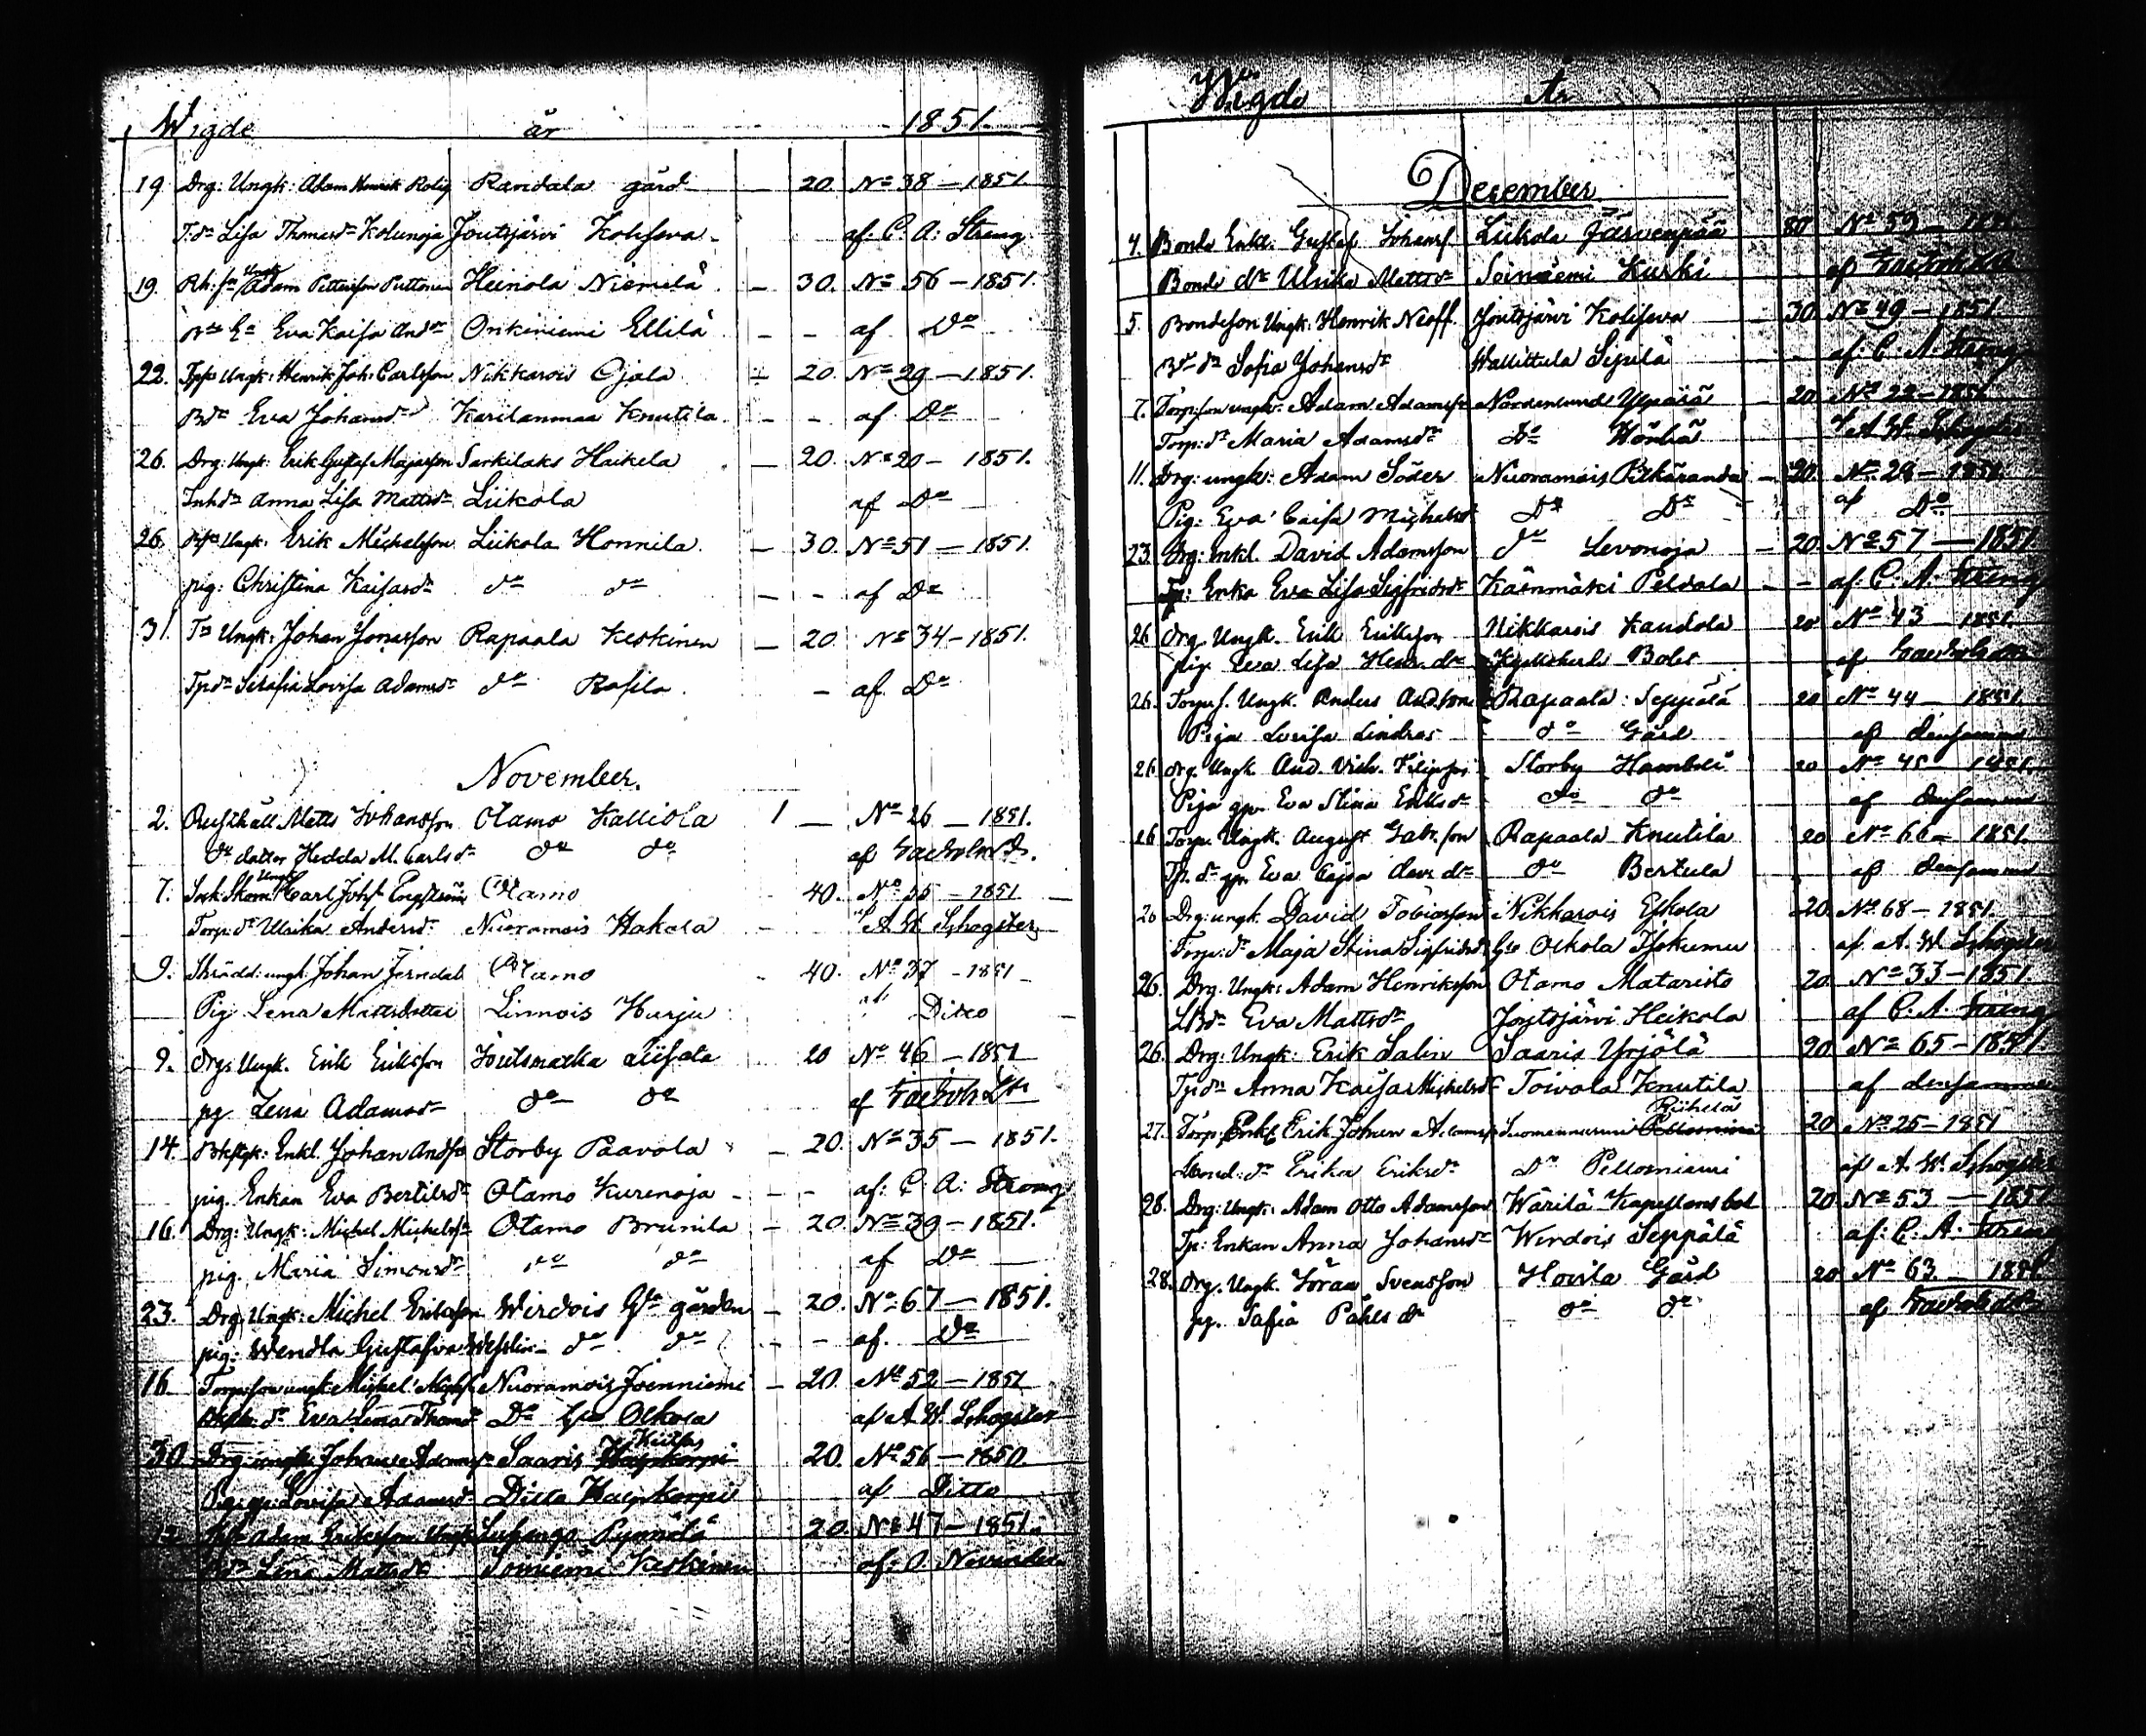 Wigde år 1851.
19. Drg: Ungk: Adam Henrik Rolig Randala gård — 20. No 38 — 1851.
T. dr Lisa Thomasdr Kolunoja Joutsjärvi Koliseva af: C. A: Streng
19. Rh: sn Ungk Adam Pettersson Puttonen Heinola Niemilä — 30. No 56 — 1851.
Eva Kaisa Andr Onkiniemi Ellilä — - af Do
22. Tpsn Ungk: Henrik Joh: Carlsson Nikkarois Ojala — 20. No 29 — 1851.
Bdr Eva Johansdr Karilanmaa Knutila - - af Do
26. Drg: Ungk: Erik Gustaf Majasson Särkilaks Haikela — 20. No 20 — 1851.
Inhdr Anna Lisa Mattsdr Liikola af Do
26. Ungk: Erik Michelsson Liikola Honnila. — 30. No 51 — 1851.
pig: Christina Kaisasdr do do - - af Do
31. Ts Ungk: Johan Jonasson Rapaala Keskinen — 20. No 34 — 1851.
Tpdr Serafia Lovisa Adamsdr do Rasila. - af Do
November.
2. Rusthåll Matts Johansson Otamo Kalliola 1 — No 26 — 1851.
do dotter Hedda M. Carlsdr do do af
7. Sock Skom Ungk Carl Johs Engström Otamo - 40. No 55 — 1851
Torp. dr Ulrika Andersdr Nuoramois Hakola - A W Schogster
9. Skrädd: ungk: Johan Jerndal Otamo - 40. No 37 - 1851
Pig Lena Mattsdotter Linnois Hurju af Ditto
9. Drg: Ungk. Erik Eriksson Joutsmatka 20 No 46 — 1851
pg. Lena Adamsdr do do af
14. Enkl. Johan Andss Storby Paavola — 20. No 35 — 1851.
pig. Enkan Eva Bertilsdr Otamo Kurenoja - - af: C. A: Streng
16. Drg: Ungk: Michel Michelss Otamo Brunila — 20. No 39 — 1851.
pig. Maria Simonsdr do do af Do
23. Drg Ungk: Michel Eriksson Wirdois Gla gården — 20. No 67 — 1851.
pig: Wendla Gustafva Wesslin do do - af. Do
16. Torparson ungk Michel Nuoramois Joenniemi — 20. No 52 — 1851
dr Eva Lena Thomdr Do Gla Olkola af A. W. Schogster
30. Drg ungk: Johan Adamss Saaris 20. No 56 — 1850.
Pig: Lovisa Adamsdr Ditto af Ditto
12. Adam Eriksson Ungk Pynnölä 20. No 47 — 1851.
Lena Mattsdr Soiniemi Keskinen af: O.
Wigde År
December
4. Bonde Enkl. Gustaf Johanss. Liikola Järvenpää 80 No 59 —
Bonde dr Ulrika Mattsdr Soiniemi Kurki af
5. Bondeson Ungk: Henrik Joutsjärvi Koliseva 30. No 49 — 1851.
Br dr Sofia Johansdr Wallittula Sipilä af: C. A. Streng
7. Torpson ungk. Adam Adamss Nordenlund Ylpää — 20. No 22 — 1851
Torp: dr Maria Adamsdr Do A. W. Schogster
11. Drg: ungk: Adam Söder Nuoramois Pitkäranda — 20. No 28 — 1851.
Pig: Eva Caisa Michelsdr Do Do af Do
23. Drg: Enkl. David Adamsson do Levonoja — 20. No 57 — 1851
Tp: Enka Eva Lisa Sigfridsdr Käenmäki Peldola - - af: C. A. Streng
26 Drg. Ungk. Erik Eriksson Nikkarois Kandola 20 No 43 — 1851.
pig. Eva Lisa Henr. dr af
26. Torp. s. Ungk. Anders Rapaala Seppälä 20 No 44 — 1851.
Piga Lovisa Lindros do Gård af densamme
26 Drg. Ungk. And. Vilh. Storby 20 No 45 — 1851
Piga Eva Stina Eriksdr do do af densamme
26 Torp. Ungk. August Gabr. son Rapaala Knutila 20 No 66 — 1851.
Tp. dr Eva Cajsa do Bertula af densamme
26 Drg: ungk. David Tobiasson Nikkarois Eskola 20 No 68 — 1851.
Torp: dr Maja Stina Sigfridsdr Gla Olkola af. A. W. Schogster
26. Drg. Ungk: Adam Henriksson Otamo Mataristo 20. No 33 — 1851.
Eva Mattsdr Joutsjärvi Heikola af C. A. Streng
26. Drg: Ungk: Erik Salin Saaris Yrjölä 20. No 65 — 1851
Tpdr Anna Kaisa Michelsdr Toivola Knutila af densamme
27. Torp: Enkl Erik Johan Riihelä 20 No 25 — 1851
dr Erika Eriksdr Do Pellosniemi af A. W. Schogster
28. Drg: Ungk: Adam Otto Adamsson Wärilä Kapellans bol 20. No 53 — 1851
Tp: Enkan Anna Johansdr Wirdois Seppälä af: C. A. Streng
28. Drg. Ungk. Göran Svensson Hovila Gård 20 No 63 — 1851
pg. Safia Påhls dr do do af